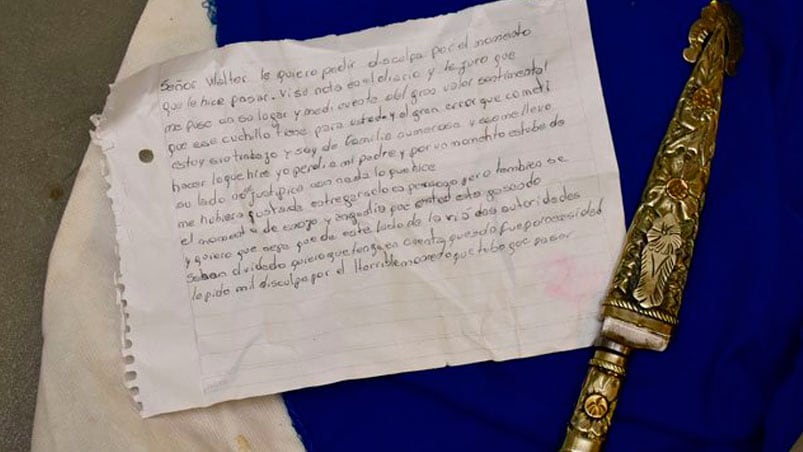 Señor Walter le quiero pedir disculpa por el momento
que le hice pasar. Vi su nota en el diario y le juro que
me puse en su lugar y me di cuenta del gran valor sentimental
que ese cuchillo tiene para usted y el gran error que cometi
estoy sin trabajo y soy de familia numerosa y eso me llevo
hacer lo que hice yo perdi a mi padre y por un momento estube de
su lado no justifica con nada lo que hice
me hubiera gustado entregarselo en pero tambien se
el momento de enojo y angustia que usted esta pasando
y quiero que sepa que de este lado de la las autoridades
se han olvidado quiero que tenga en cuenta que solo fue por necesidad
le pido mil disculpa por el Horrible que tubo que pasar